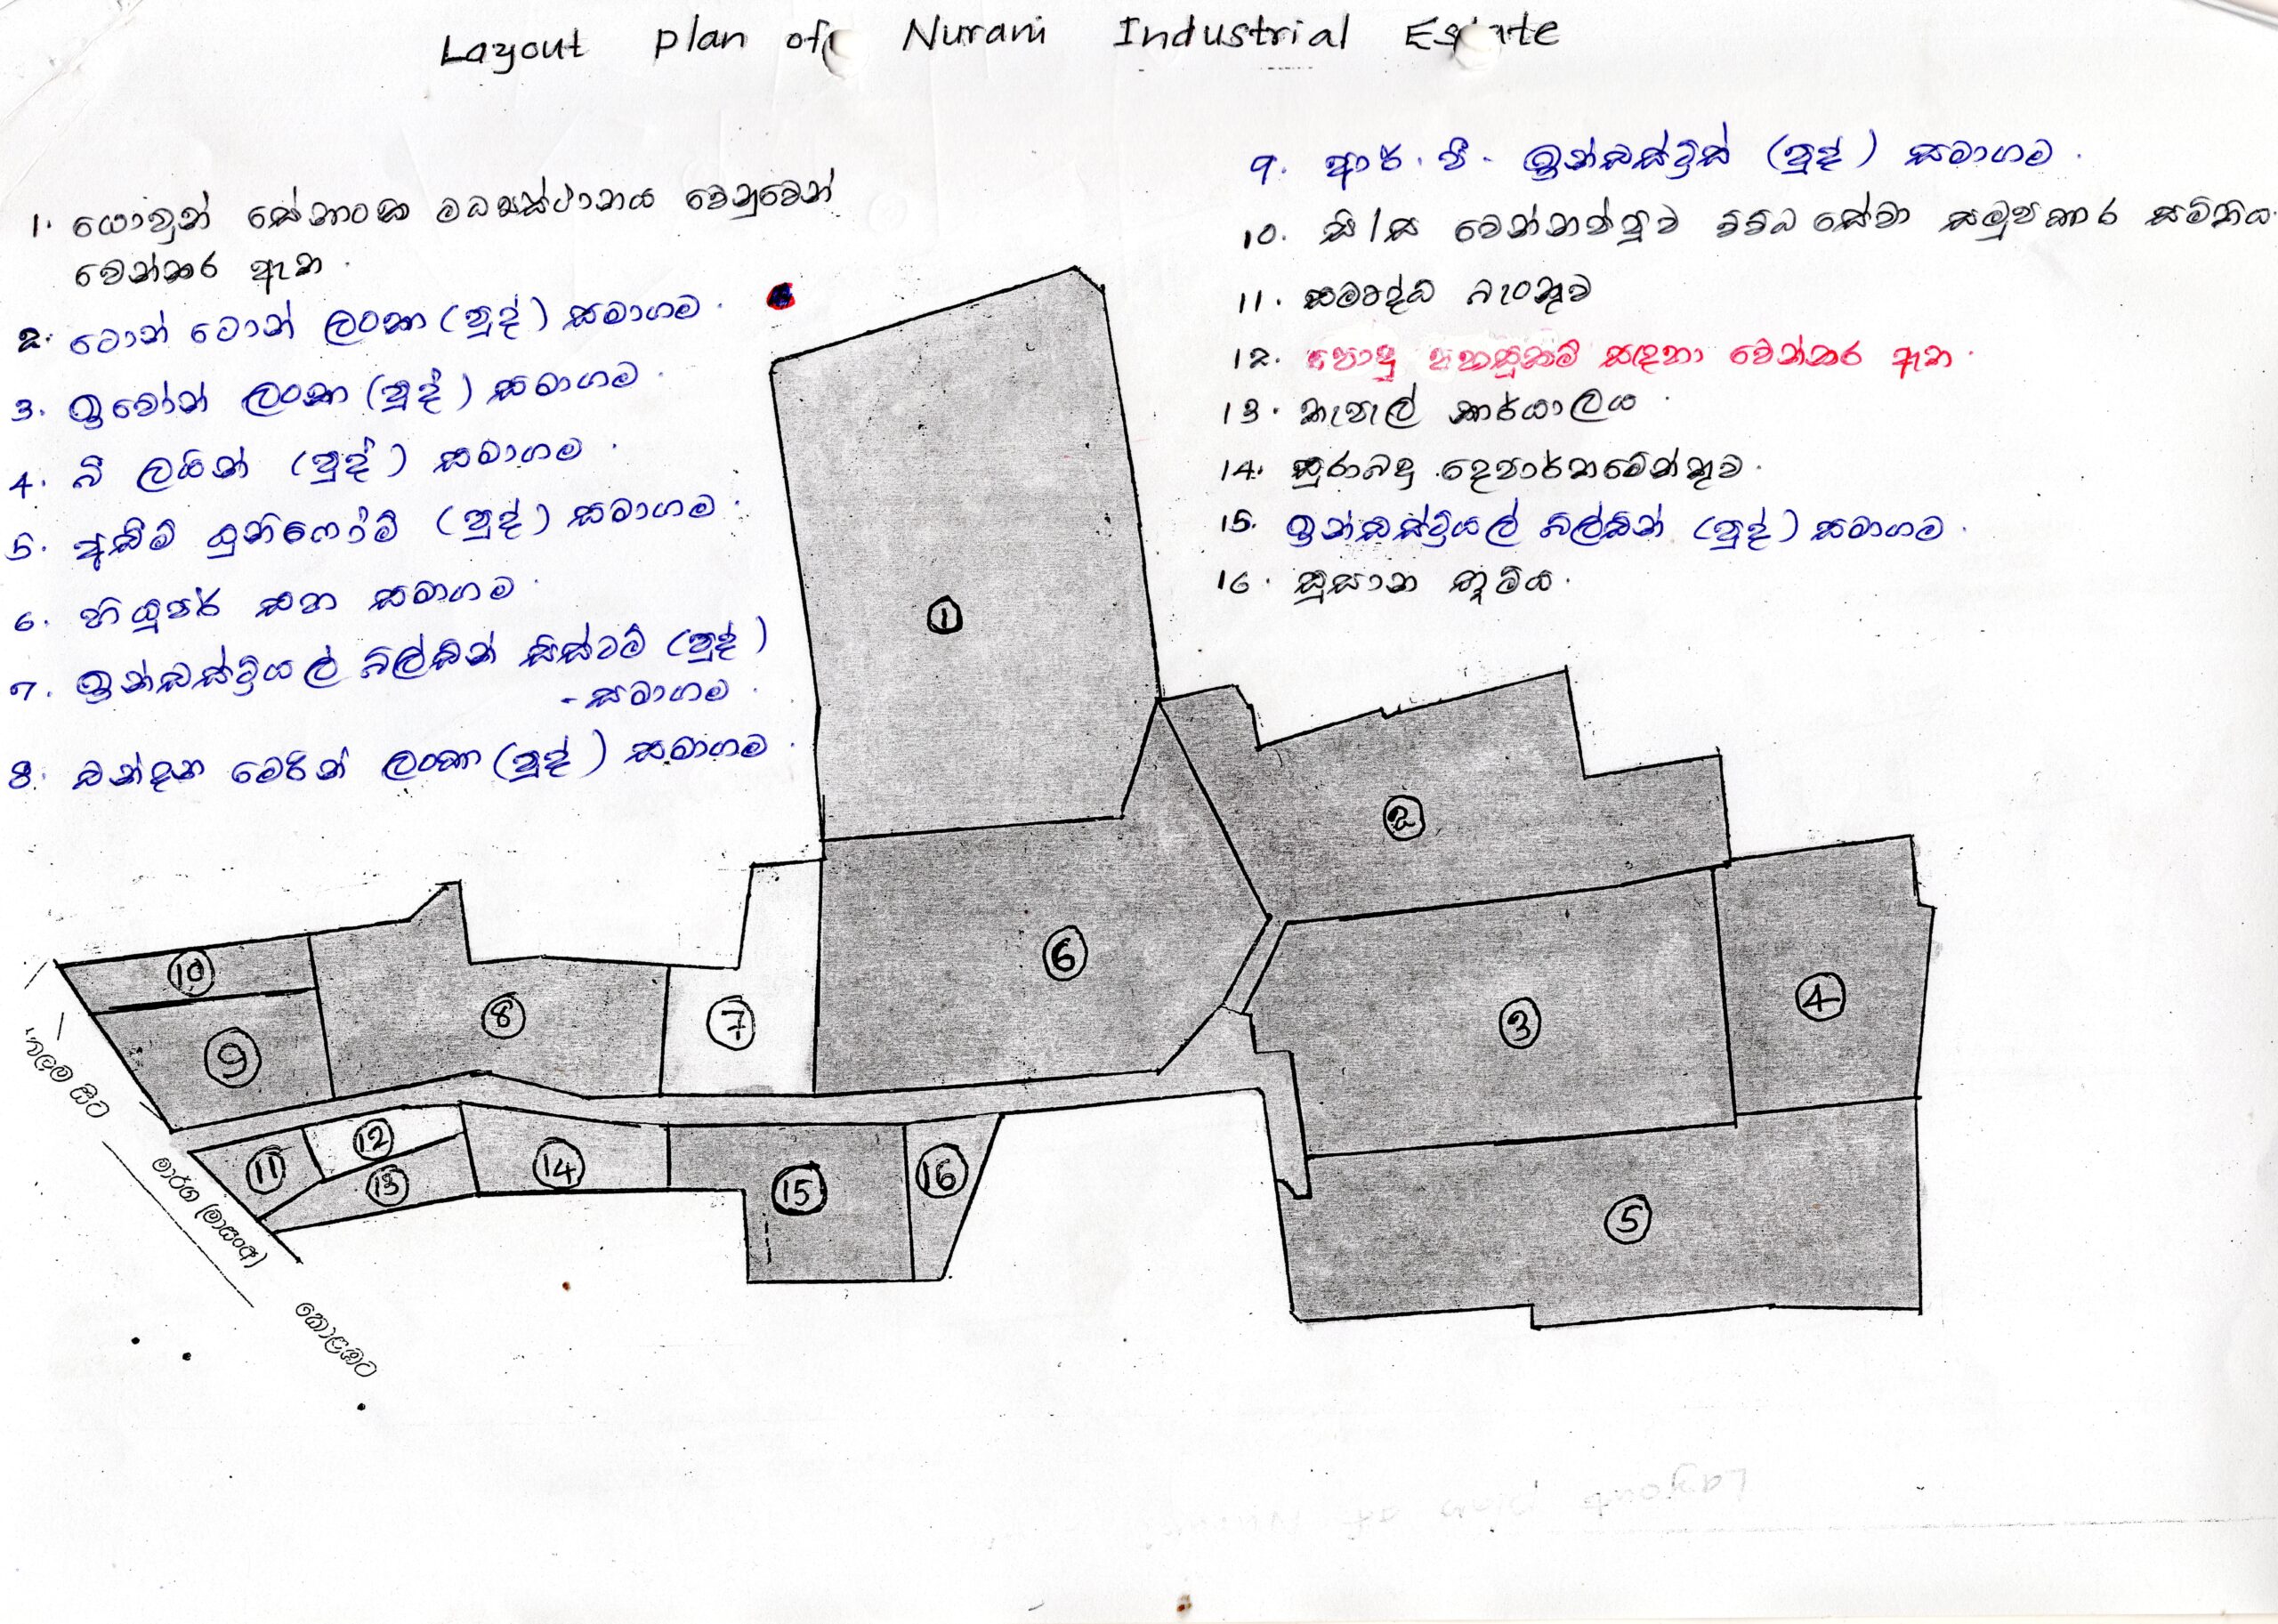 Layout plan of Nurani Industrial Estate
1. යොවුන් සේනාංක මධ්‍යස්ථානය වෙනුවෙන්
වෙන්කර ඇත.
2. ටොන් ටොන් ලංකා (පුද්) සමාගම.
3. ඉවෝන් ලංකා (පුද්) සමාගම.
4. බී ලයින් (පුද්) සමාගම.
5. අඩිම් යුනිෆෝම් (පුද්) සමාගම.
6. හියුපර් සහ සමාගම.
7. ඉන්ඩස්ට්‍රියල් බිල්ඩින් සිස්ටම් (පුද්)
- සමාගම.
8. ඩන්දන මෙරින් ලංකා (පුද්) සමාගම.
9. ආර්. පී. ඉන්ඩස්ට්‍රිස් (පුද්) සමාගම.
10. සී/ස වෙන්නප්පුව විවිධ සේවා සමුපකාර සමිතිය.
11. සමෘද්ධි බැංකුව
12. පොදු පහසුකම් සඳහා වෙන්කර ඇත.
13. තැපැල් කාර්යාලය.
14. සුරාබදු දෙපාර්තමේන්තුව.
15. ඉන්ඩස්ට්‍රියල් බිල්ඩින් (පුද්) සමාගම.
16. සුසාන භූමිය.
1
2
6
10
8
4
9
7
3
12
11
13
14
15
16
5
මාර්ග (මාසංඅ)
කොළඹට